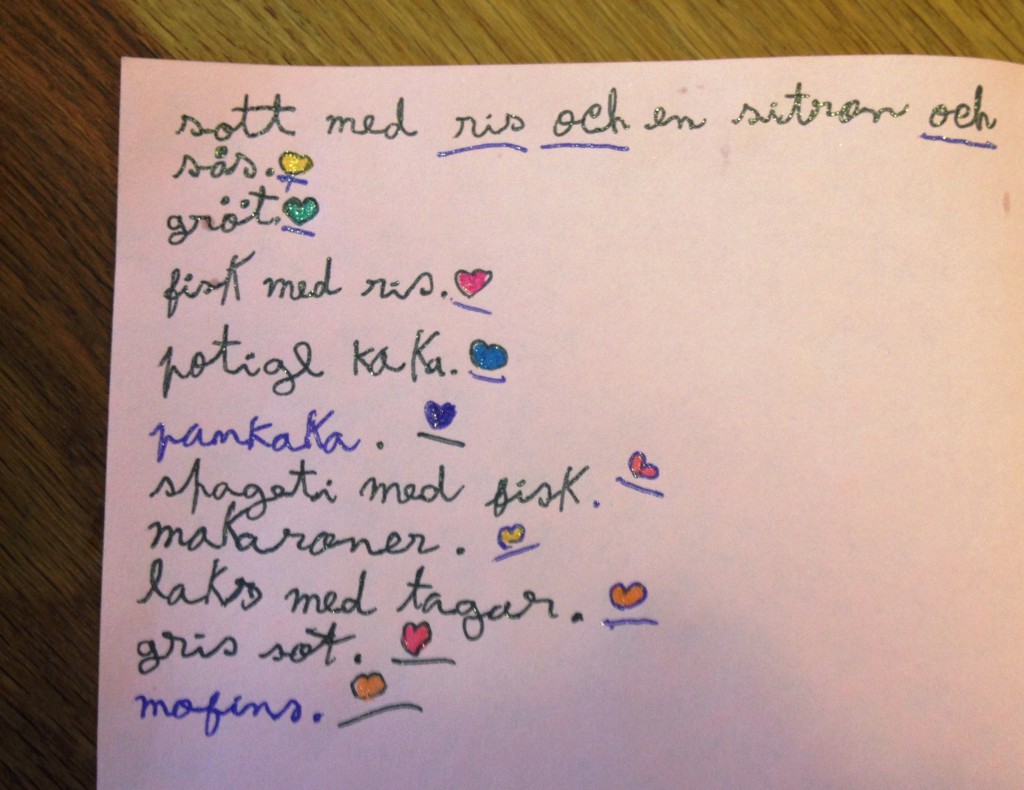 sott med ris och en sitron och
sås.
gröt.
fisk med ris.
potigl kaka.
pamkaka.
spageti med fisk.
makaroner.
laks med tagar.
gris sot.
mofins.